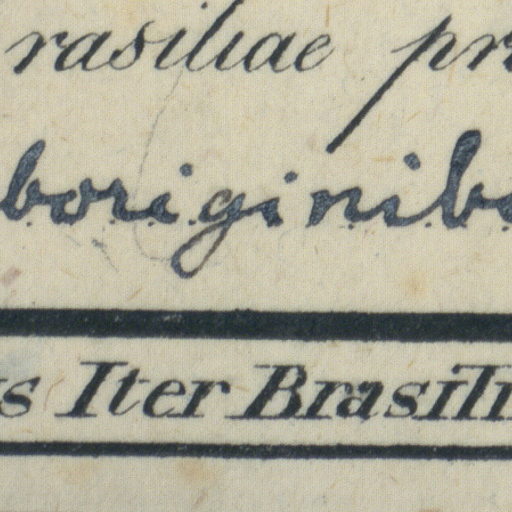 rasiliae pr
boriginib
s Iter Brasili